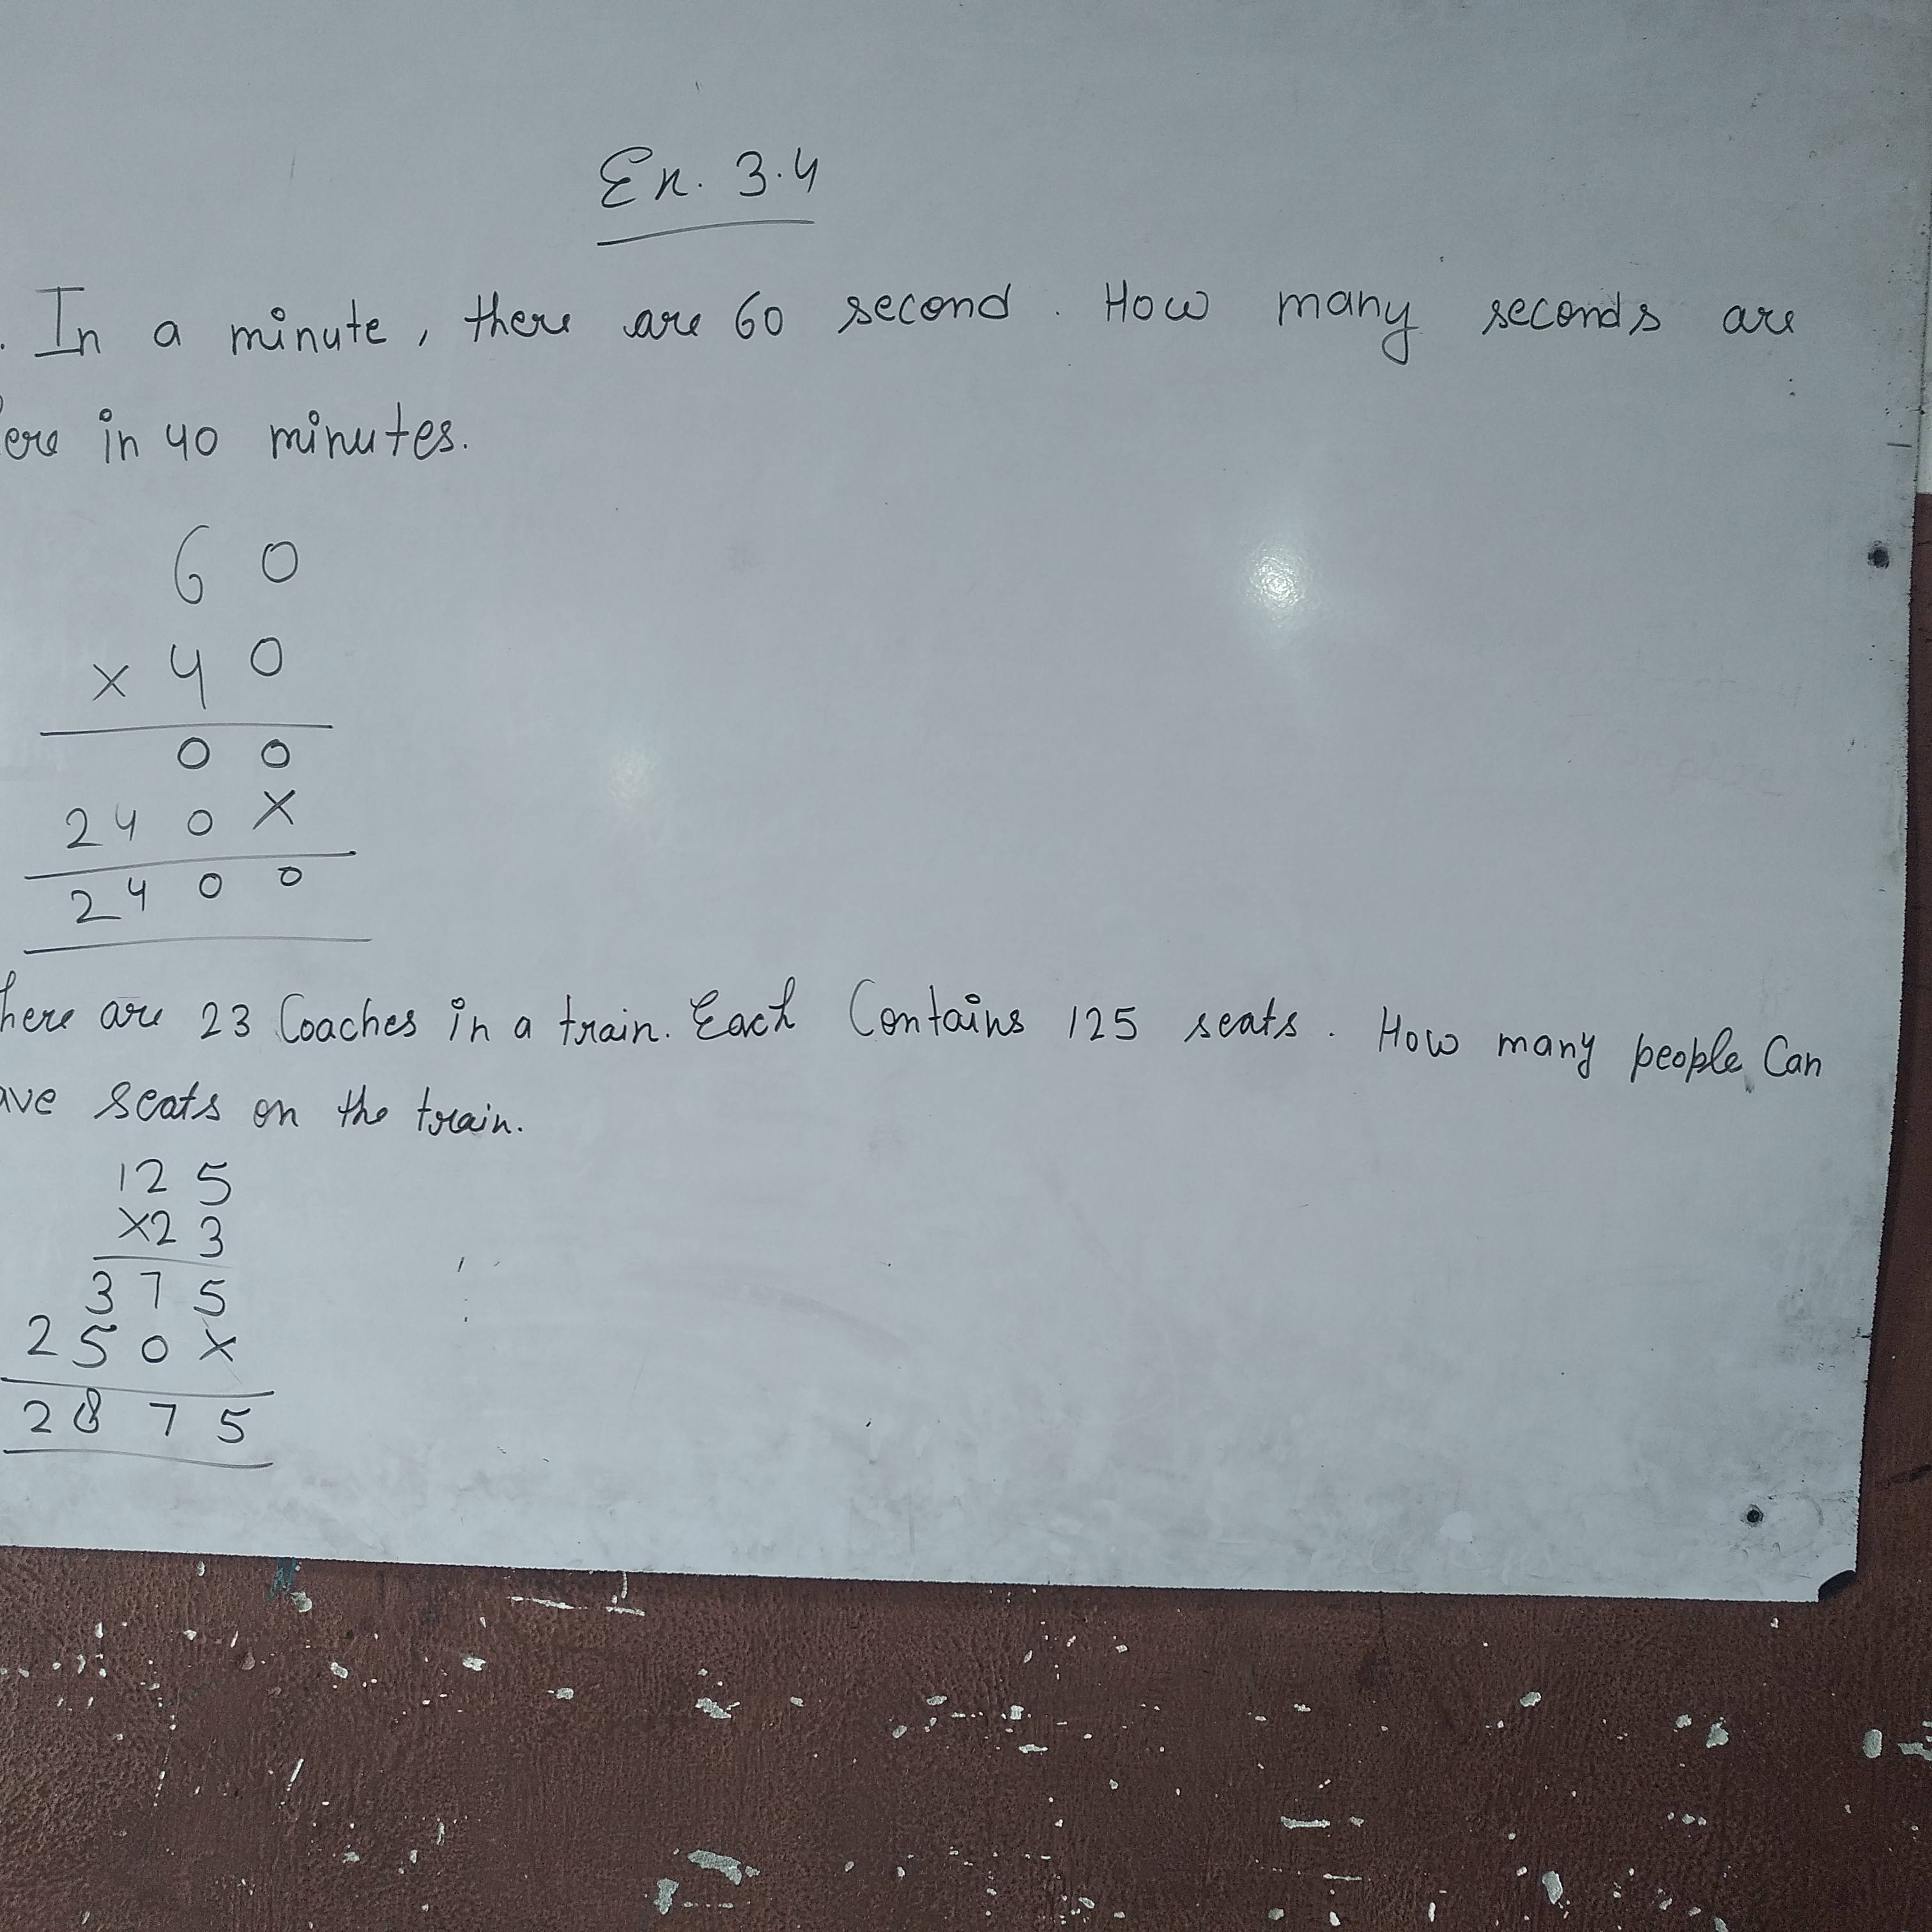 Ex. 3.4
. In a minute, there are 60 second. How many seconds are
ere in 40 minutes.
6 0
x 4 0
0 0
2 4 0 x
2 4 0 0
here are 23 Coaches in a train. Each Contains 125 seats. How many people Can
ave seats on the train.
12 5
x2 3
3 7 5
2 5 0 x
2 8 7 5